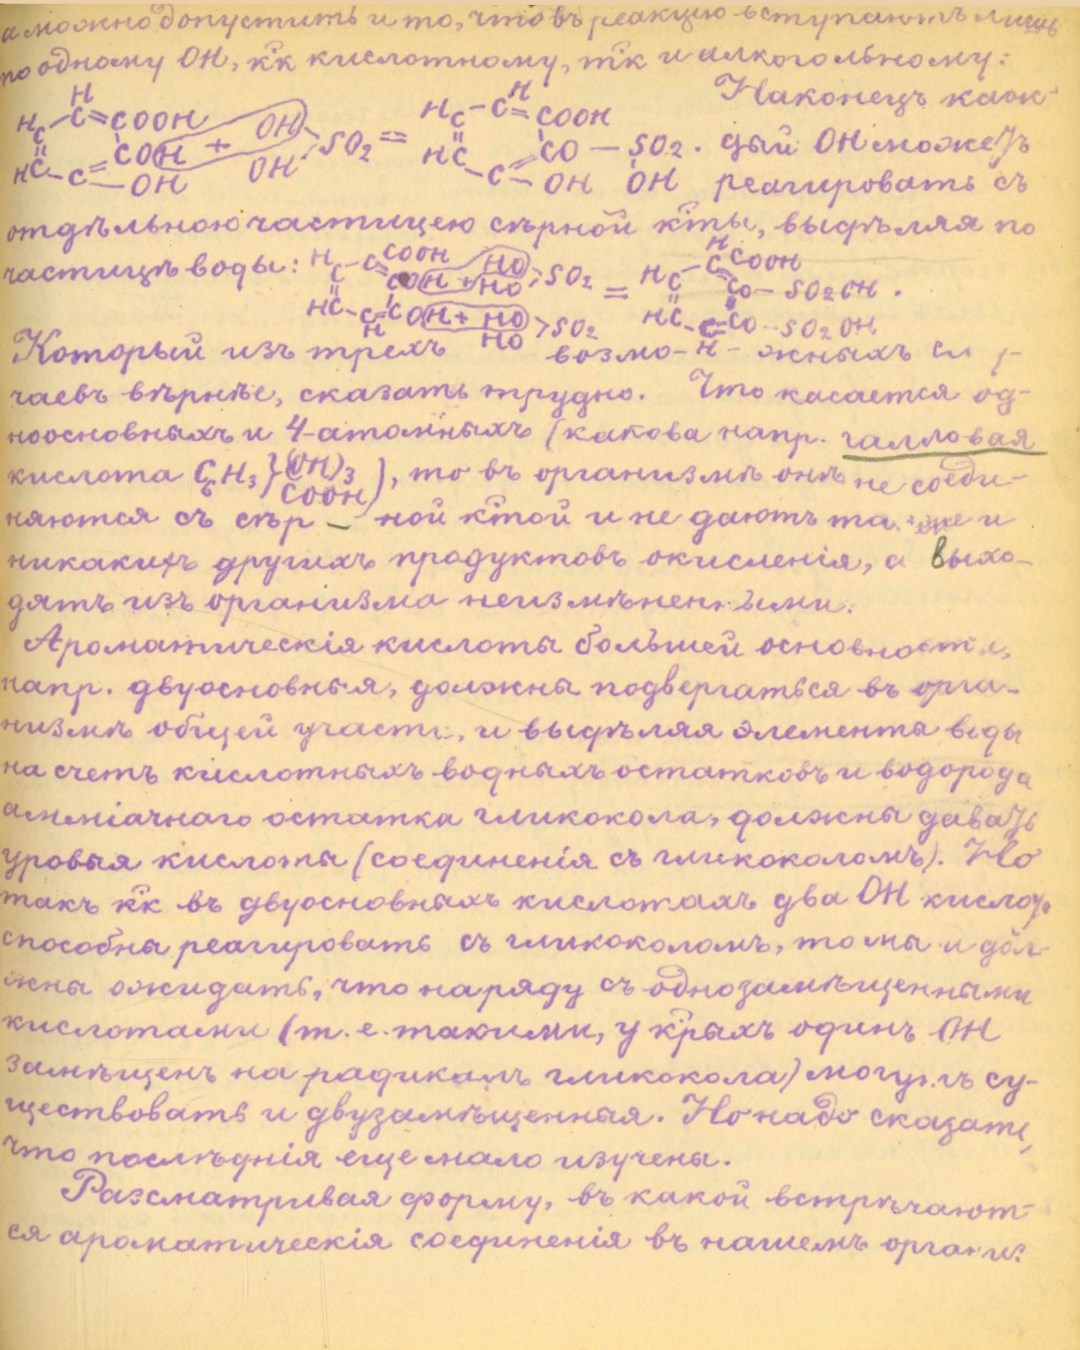 а можно допустить и то, что въ реакцію вступаютъ лишь
по одному ОН, к̈к кислотному, т̈к и алкогольному:
Наконецъ каж-
H C — C H = C COOH
HC = C — OH COH + OH OH SO2 = H C — C H = C COOH HC C — OH CO — SO2 . OH
дый ОН можетъ
реагировать съ
отдѣльною частицею сѣрной к̈ты, выдѣляя по
частицѣ воды: H C — C COOH COH + HO HO > SO2 HC C H COH + HO HO > SO2 = H C C H COOH CO — SO2OH . HC C H CO — SO2OH
Который изъ трехъ возмо- жныхъ сл
чаевъ вѣрнѣе, сказать трудно. Что касается од-
ноосновныхъ и 4-атомныхъ (какова напр. галловая
кислота C6H3}(OH)3 COOH), то въ организмѣ онѣ не соеди-
няются съ сѣр – ной к̈той и не даютъ та же и
никакихъ другихъ продуктовъ окисленія, а выхо-
дятъ изъ организма неизмѣненными.
Ароматическія кислоты большей основности,
напр. двуосновныя, должны подвергаться въ орга-
низмѣ общей участи, и выдѣляя элементы воды
на счетъ кислотныхъ водныхъ остатковъ и водорода
амміачнаго остатка гликокола, должны давать
уровыя кислоты (соединенія съ гликоколомъ). Но
такъ к̈к въ двуосновныхъ кислотахъ два ОН кислот
способны реагировать съ гликоколомъ, то мы и дол-
жны ожидать, что наряду съ однозамѣщенными
кислотами (т. е. такими, у к̈рыхъ одинъ ОН
замѣщенъ на радикалъ гликокола) могутъ су-
ществовать и двузамѣщенныя. Но надо сказать,
что послѣднія еще мало изучены.
Разсматривая форму, въ какой встрѣчают-
ся ароматическія соединенія въ нашемъ организ